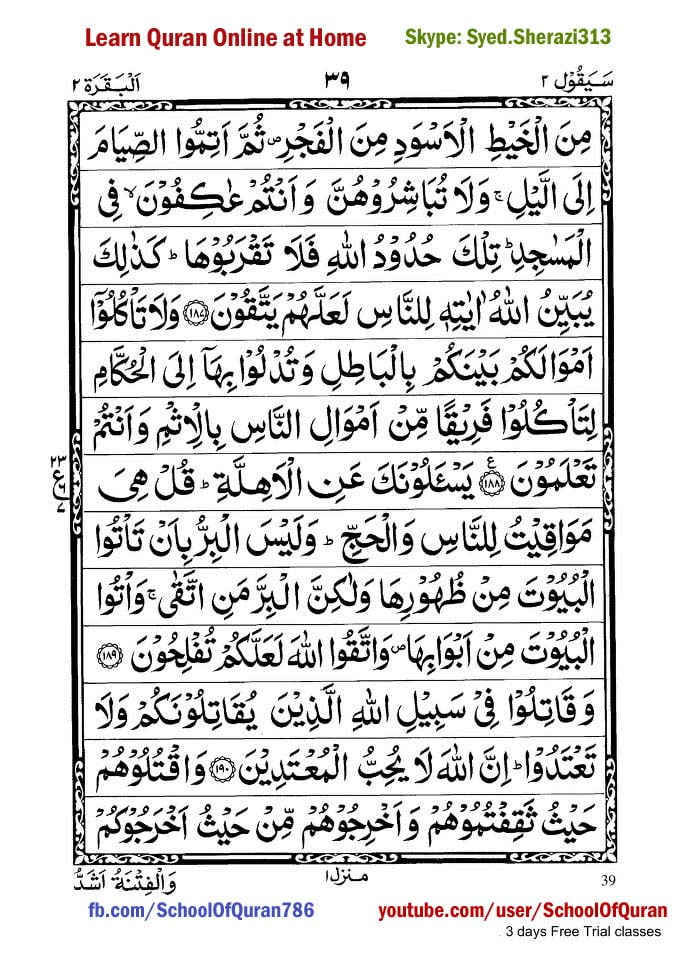 Learn Quran Online at Home Skype: Syed.Sherazi313
سَيَقُوْل ٢ ٣٩ اَلْبَقَرَة ٢
مِنَ الْخَيْطِ الْاَسْوَدِ مِنَ الْفَجْرِ ۪ ثُمَّ اَتِمُّوا الصِّيَامَ
اِلَى الَّيْلِ ۚ وَلَا تُبَاشِرُوْهُنَّ وَاَنْتُمْ عٰكِفُوْنَ ۙ فِي
الْمَسٰجِدِ ؕ تِلْكَ حُدُوْدُ اللّٰهِ فَلَا تَقْرَبُوْهَا ؕ كَذٰلِكَ
يُبَيِّنُ اللّٰهُ اٰيٰتِهٖ لِلنَّاسِ لَعَلَّهُمْ يَتَّقُوْنَ ﴿١٨٧﴾ وَلَا تَاْكُلُوْۤا
اَمْوَالَكُمْ بَيْنَكُمْ بِالْبَاطِلِ وَتُدْلُوْا بِهَاۤ اِلَى الْحُكَّامِ
لِتَاْكُلُوْا فَرِيْقًا مِّنْ اَمْوَالِ النَّاسِ بِالْاِثْمِ وَاَنْتُمْ
تَعْلَمُوْنَ ﴿١٨٨﴾ ع يَسْـَٔلُوْنَكَ عَنِ الْاَهِلَّةِ ؕ قُلْ هِيَ
٢٣ ع ٦ ٧
مَوَاقِيْتُ لِلنَّاسِ وَالْحَجِّ ؕ وَلَيْسَ الْبِرُّ بِاَنْ تَاْتُوا
الْبُيُوْتَ مِنْ ظُهُوْرِهَا وَلٰكِنَّ الْبِرَّ مَنِ اتَّقٰى ۚ وَاْتُوا
الْبُيُوْتَ مِنْ اَبْوَابِهَا ۪ وَاتَّقُوا اللّٰهَ لَعَلَّكُمْ تُفْلِحُوْنَ ﴿١٨٩﴾
وَقَاتِلُوْا فِيْ سَبِيْلِ اللّٰهِ الَّذِيْنَ يُقَاتِلُوْنَكُمْ وَلَا
تَعْتَدُوْا ؕ اِنَّ اللّٰهَ لَا يُحِبُّ الْمُعْتَدِيْنَ ﴿١٩٠﴾ وَاقْتُلُوْهُمْ
حَيْثُ ثَقِفْتُمُوْهُمْ وَاَخْرِجُوْهُمْ مِّنْ حَيْثُ اَخْرَجُوْكُمْ
وَالْفِتْنَةُ اَشَدُّ منزل ١ 39
fb.com/SchoolOfQuran786 youtube.com/user/SchoolOfQuran
. 3 days Free Trial classes